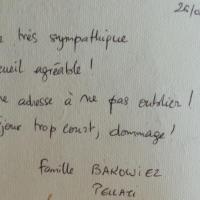 26/0
très sympathique
cueil agréable !
ne adresse à ne pas oublier !
jour trop court, dommage !
famille BAROWIEZ
PELLATI